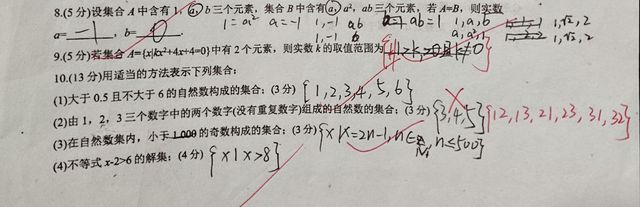 8.(5分)设集合 A 中含有 1, a, b 三个元素, 集合 B 中含有 a, a², ab 三个元素, 若 A=B, 则实数
1=a² a=-1 1,-1 ab ab=1 1,a,b 1,√2,2
a= -1 , b= 0 . 1,-1 b a,a²,1 1,√2,2
9.(5分)若集合 A={x|kx²+4x+4=0}中有 2 个元素, 则实数 k 的取值范围为
10.(13分)用适当的方法表示下列集合:
(1)大于 0.5 且不大于 6 的自然数构成的集合; (3分) {1,2,3,4,5,6}
(2)由 1, 2, 3 三个数字中的两个数字(没有重复数字)组成的自然数的集合; (3分) {3,4,5} {12,13,21,23,31,32}
(3)在自然数集内, 小于 1 000 的奇数构成的集合; (3分) {x|x=2n-1,n∈N,n≤500}
(4)不等式 x-2>6 的解集; (4分) {x|x>8}